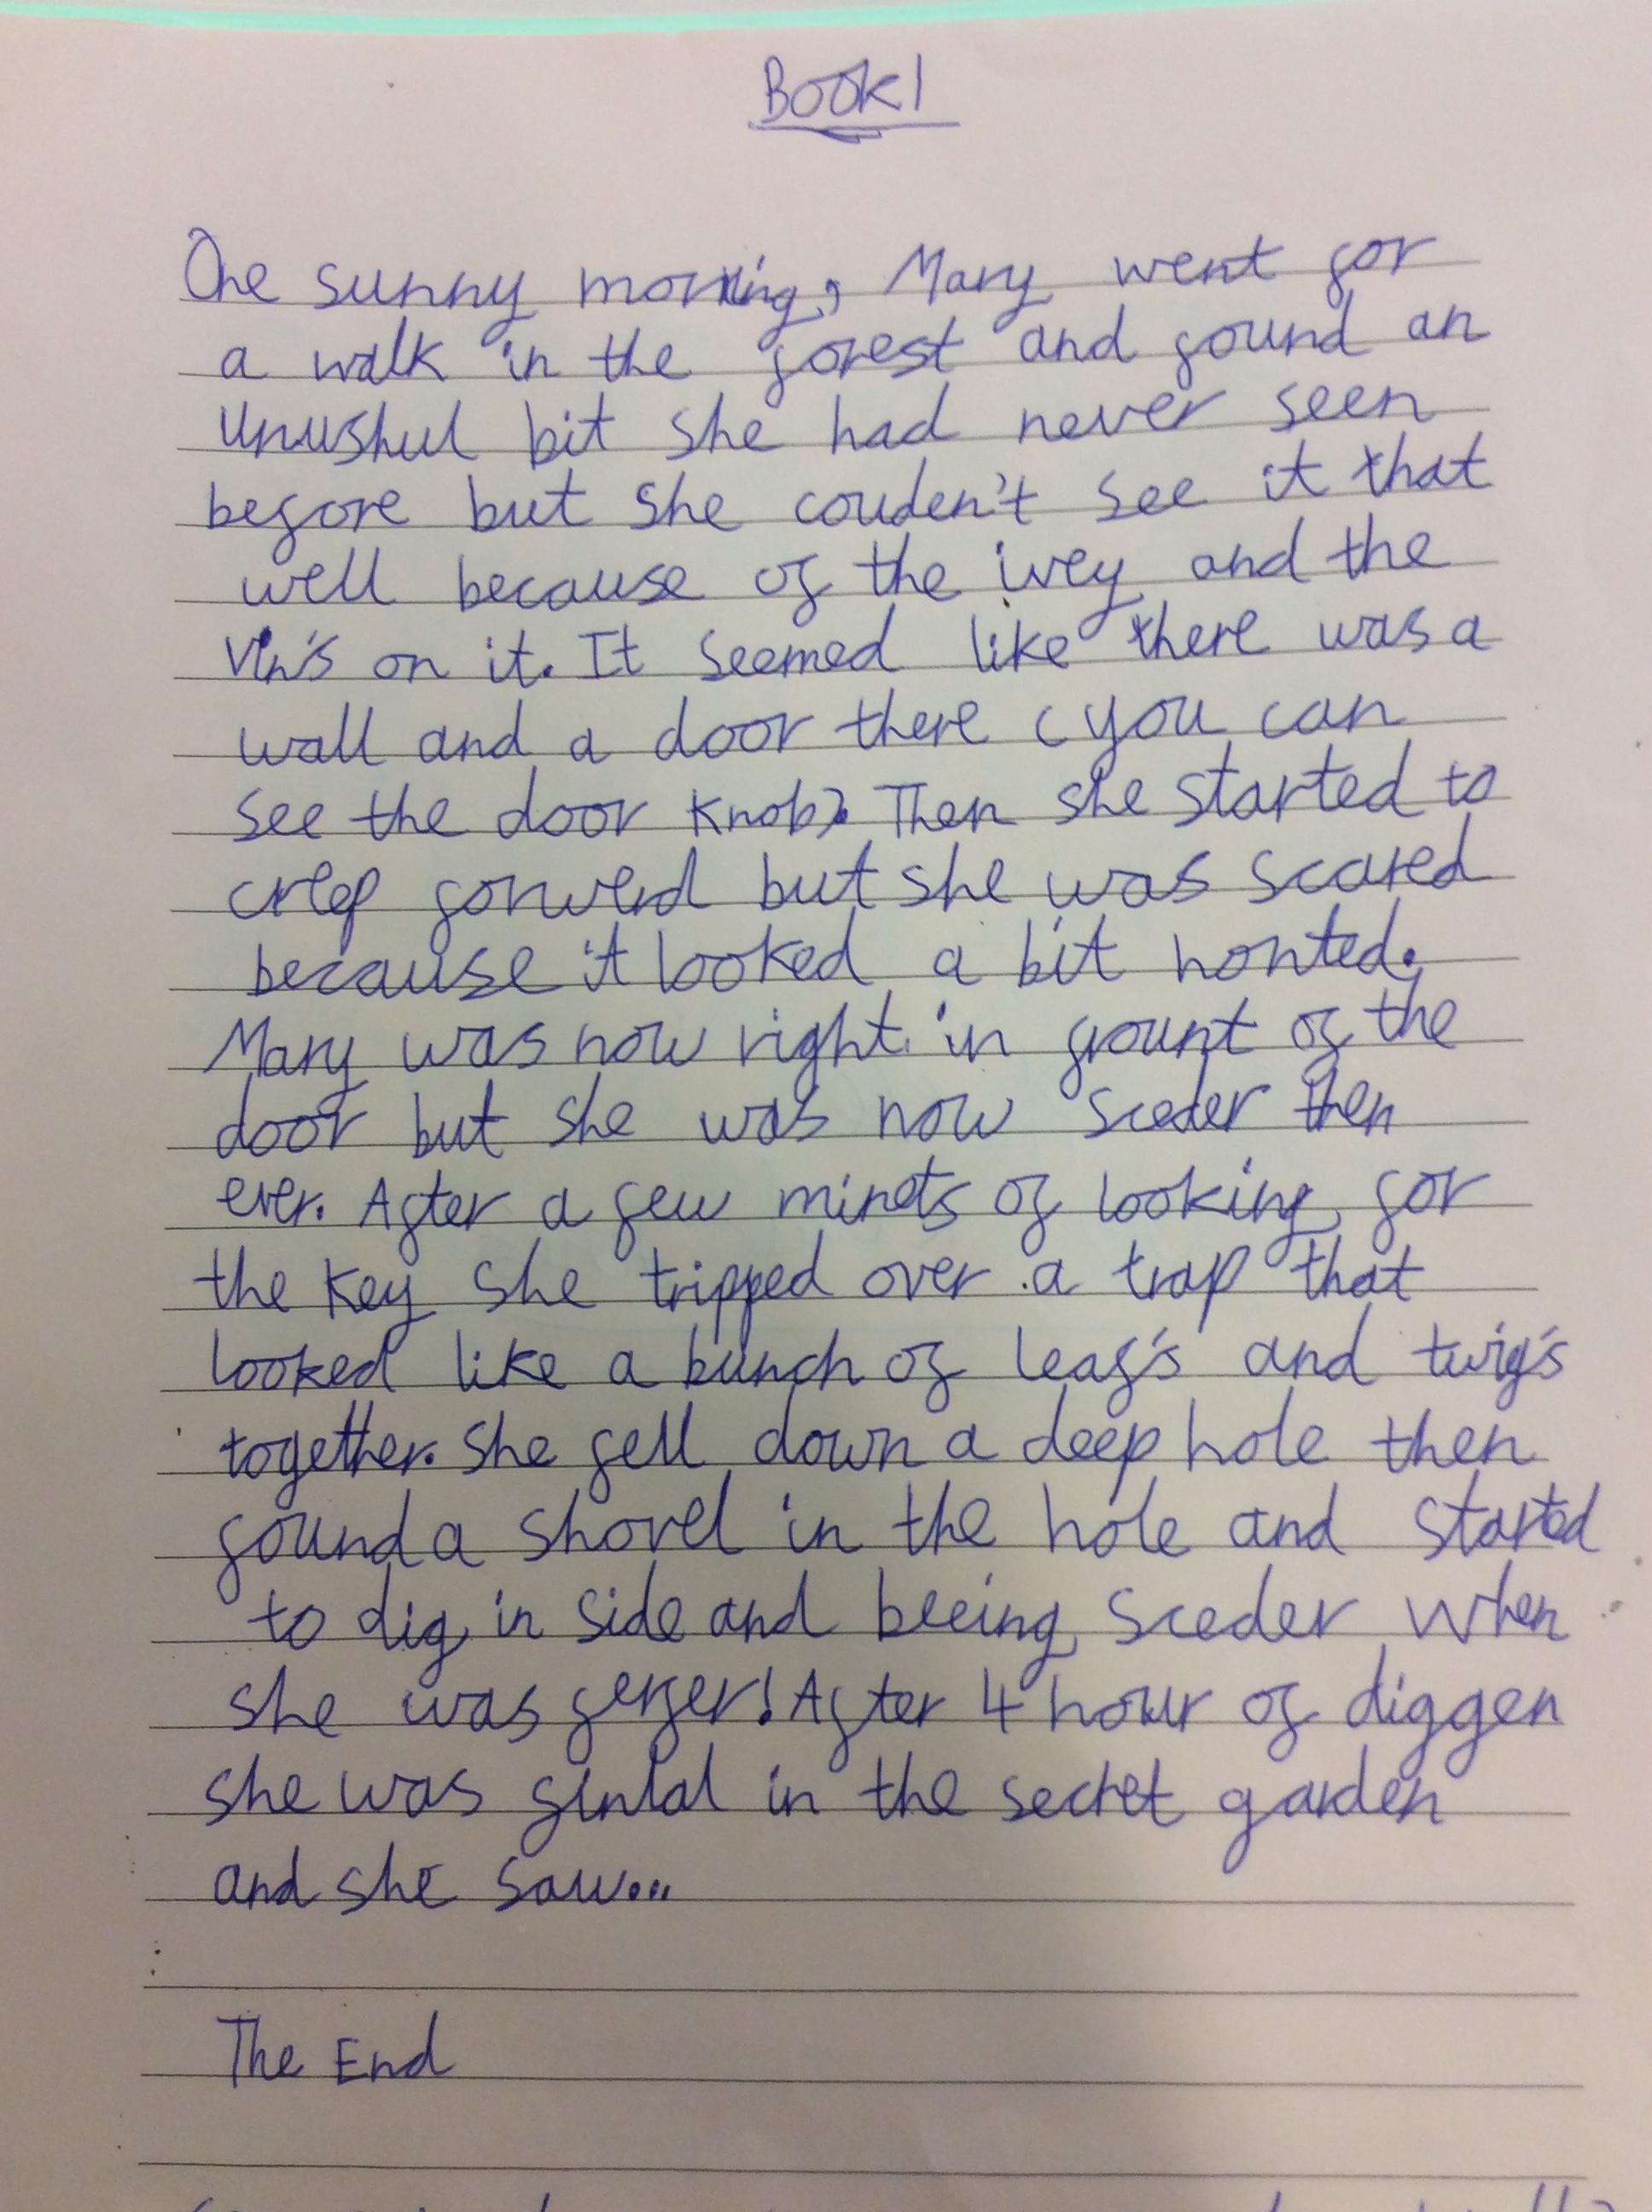 Book 1
One sunny morning, Mary went for
a walk in the forest and found an
unushul bit she had never seen
before but she couden't see it that
well because of the ivey and the
vin's on it. It seemed like there was a
wall and a door there (you can
see the door knob). Then she started to
creep forwerd but she was scared
because it looked a bit honted.
Mary was now right in frount of the
door but she was now sceder then
ever. After a few minets of looking for
the key she tripped over a trap that
looked like a bunch of leaf's and twig's
together. She fell down a deep hole then
found a shovel in the hole and started
to dig in side and beeing sceder when
she was ferfer! After 4 hour of diggen
she was finlal in the secret garden
and she saw...
The End